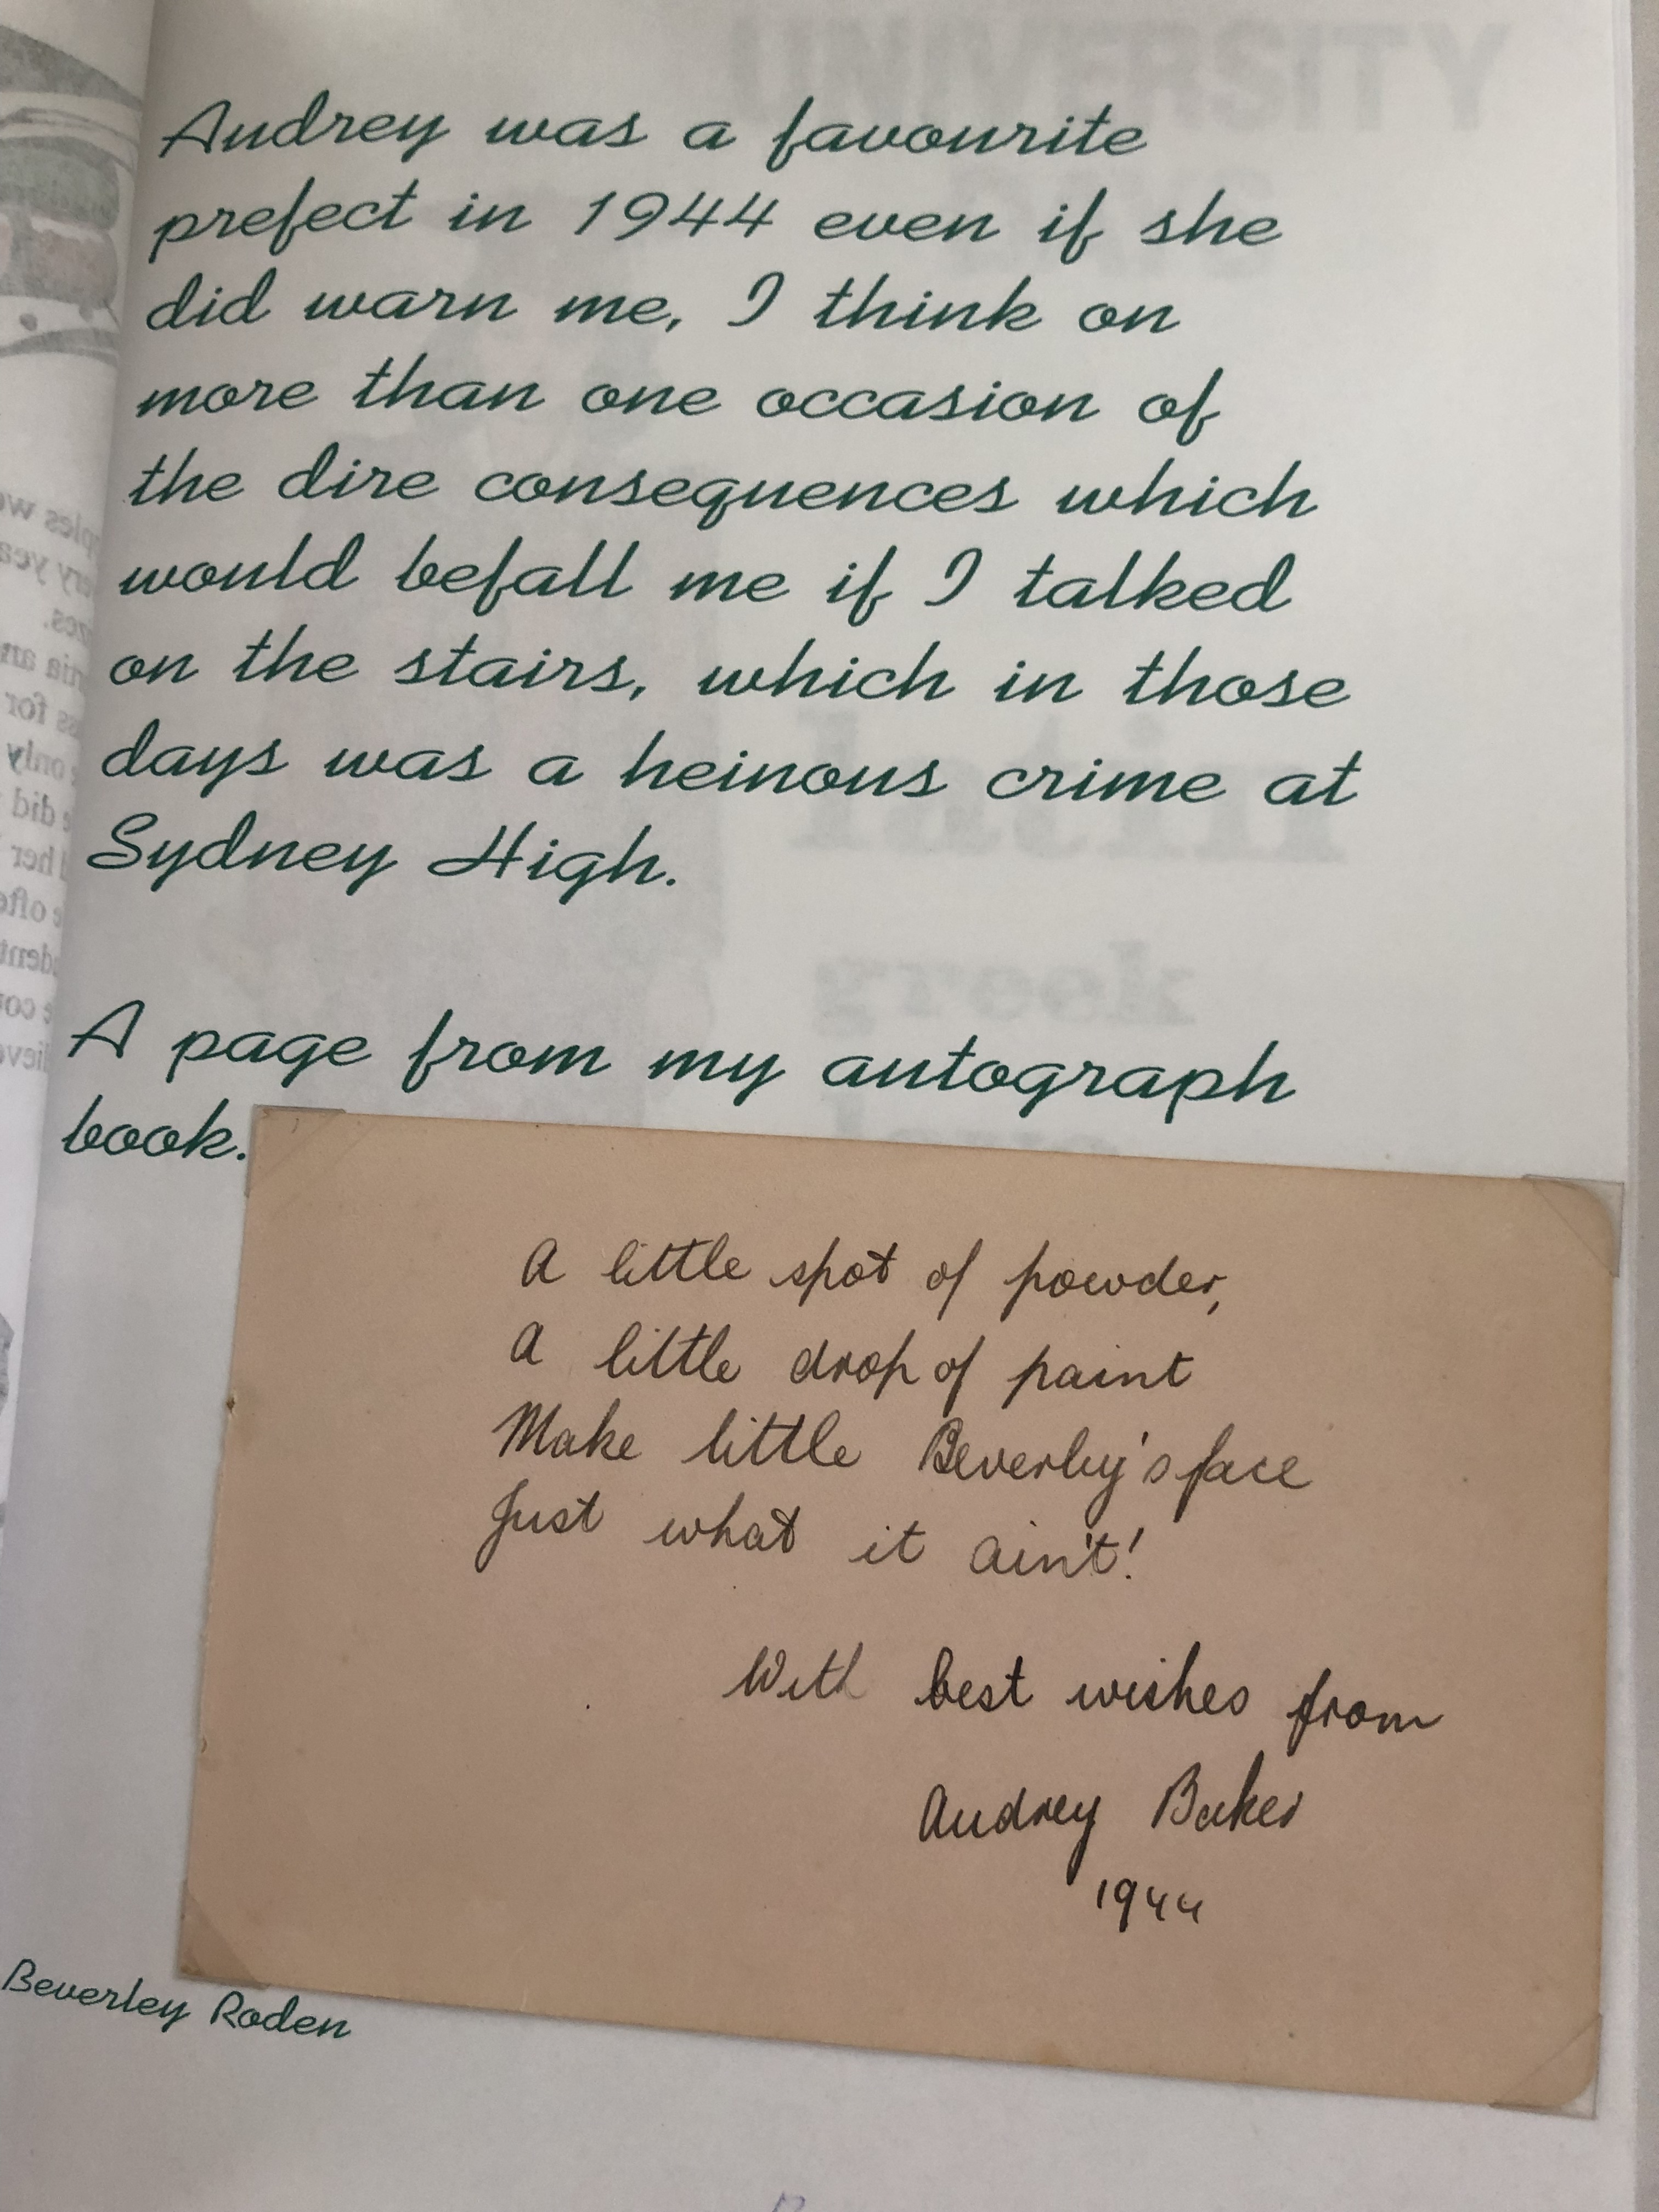 Audrey was a favourite
prefect in 1944 even if she
did warn me, I think on
more than one occasion of
the dire consequences which
would befall me if I talked
on the stairs, which in those
days was a heinous crime at
Sydney High.
A page from my autograph
book.
A little spot of powder,
A little drop of paint
Make little Beverley's face
Just what it ain't!
With best wishes from
Audrey Baker
1944
Beverley Roden
UNIVERSITY
latin
greek